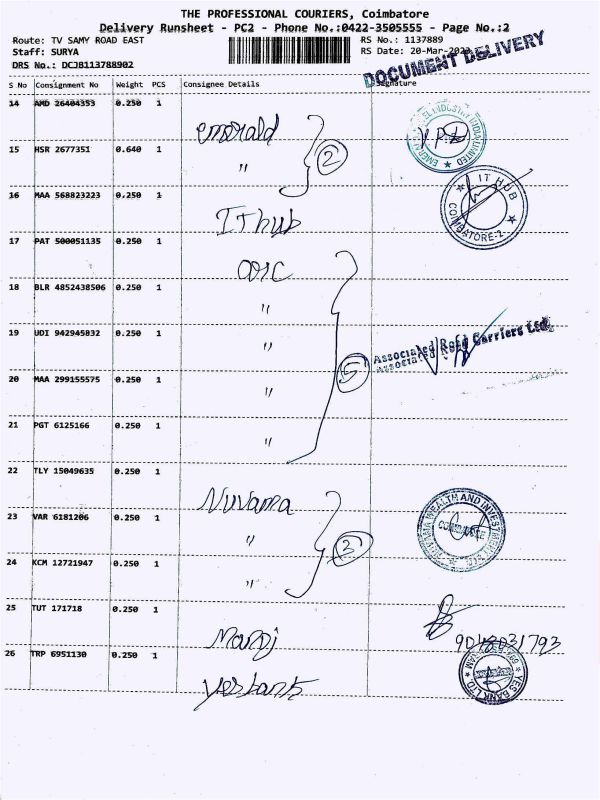 THE PROFESSIONAL COURIERS, Coimbatore
Delivery Runsheet - PC2 - Phone No.:0422-3505555 - Page No.:2
Route: TV SAMY ROAD EAST
RS No.: 1137889
Staff: SURYA
RS Date: 20-Mar-2023
DRS No.: DCJB113788902
DOCUMENT DELIVERY
S No Consignment No Weight PCS Consignee Details Signature
14 AMD 26404353 0.250 1 emerald
15 HSR 2677351 0.640 1 〃 2
16 MAA 568823223 0.250 1 IT hub
IT HUB
COIMBATORE-2
17 PAT 500051135 0.250 1 ARC
18 BLR 4852438506 0.250 1 〃
19 UDI 942945832 0.250 1 〃
Associated Road Carriers Ltd.
20 MAA 299155575 0.250 1 〃 5
21 PGT 6125166 0.250 1 〃
22 TLY 15049635 0.250 1 Nuvama
NUVAMA WEALTH AND INVESTMENT LTD
COIMBATORE
23 VAR 6181206 0.250 1 〃 3
24 KCM 12721947 0.250 1 〃
25 TUT 171718 0.250 1 Manoj
9048031793
26 TRP 6951130 0.250 1 yes bank
YES BANK LTD